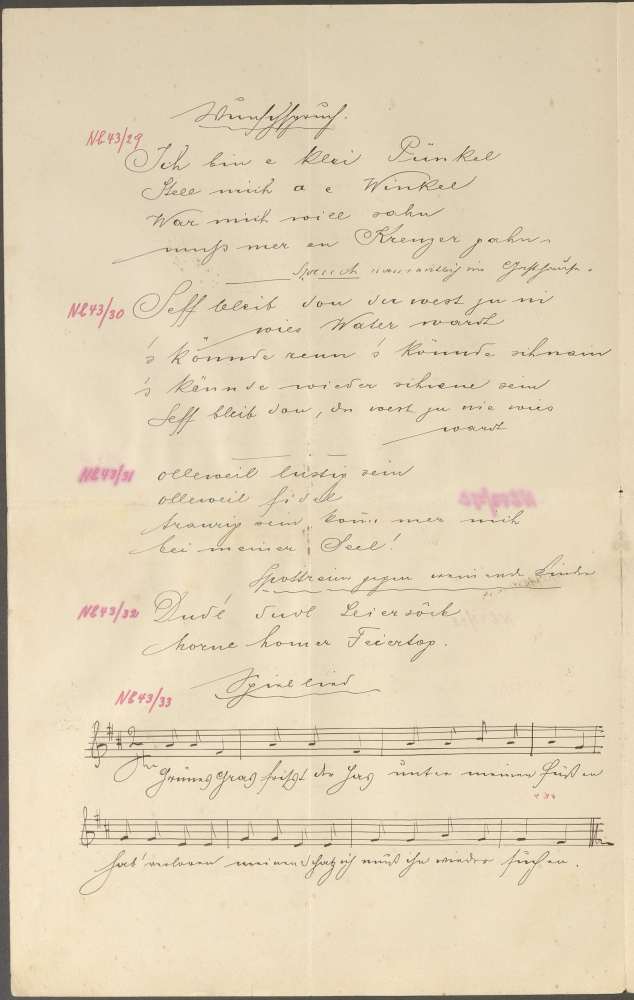 Wunschspruch.
NL43/29
Ich bin e klei Pünkel
Stell mich a e Winkel
War mich will sahn
muß mer en Kreuzer gahn.
Spruch im Gasthause.
NL43/30
Seff bleib dou du west ju ni
wies Water wardt
's könnde renn 's könnde schnain
's kännde wieder schiene sein
Seff bleib dou, du west ju nie wies
wardt
NL43/31
olleweil lustig sein
olleweil fidel
traurig sein konn mer nich
bei meiner Seel!
Spottreim gegen weinende Kinder
NL43/32
Dudl dudl Leiersock
Morne homer Feiertog.
Spiellied
NL43/33
Grünes Gras frißt der Has unter meinen Füßen
hab' verloren meinen Schatz ich muß ihn wieder suchen.